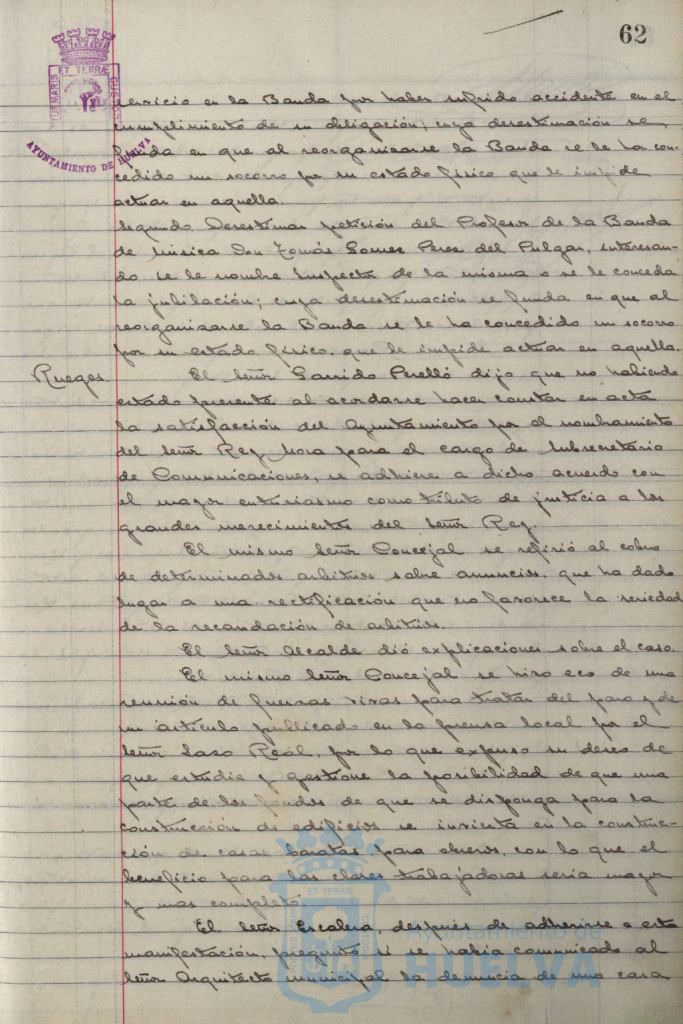 62
ET TERRÆ
AYUNTAMIENTO DE HUELVA
servicio en la Banda por haber sufrido accidente en el
cumplimiento de su obligación; cuya desestimación se
funda en que al reorganizarse la Banda se le ha con-
cedido un socorro por su estado físico que le impide
actuar en aquella.
Segundo Desestimar petición del Profesor de la Banda
de música Don Tomás Gomez Perez del Pulgar, interesan-
do se le nombre Inspector de la misma o se le conceda
la jubilación; cuya desestimación se funda en que al
reorganizarse la Banda se le ha concedido un socorro
por su estado físico, que le impide actuar en aquella.
Ruegos. El Señor Garrido Perelló dijo que no habiendo
estado presente al acordarse hacer constar en acta
la satisfacción del Ayuntamiento por el nombramiento
del Señor Rey Mora para el cargo de Subsecretario
de Comunicaciones, se adhiere a dicho acuerdo con
el mayor entusiasmo como tributo de justicia a los
grandes merecimientos del Señor Rey.
El mismo Señor Concejal se refirió al cobro
de determinados arbitrios sobre anuncios, que ha dado
lugar a una rectificación que no favorece la seriedad
de la recaudación de arbitrios.
El Señor Alcalde dió explicaciones sobre el caso.
El mismo Señor Concejal se hizo eco de una
reunión de fuerzas vivas para tratar del paro y de
un artículo publicado en la prensa local por el
Señor Laso Real, por lo que expuso su deseo de
que estudie y gestione la posibilidad de que una
parte de los fondos de que se disponga para la
construcción de edificios se invierta en la construc-
ción de casas baratas para obreros, con lo que el
beneficio para las clases trabajadoras seria mayor
y mas completo.
El Señor Escalera, después de adherirse a esta
manifestación, preguntó si se había comunicado al
Señor Arquitecto municipal la denuncia de una casa
ET TERRÆ
Ayuntamiento de
HUELVA